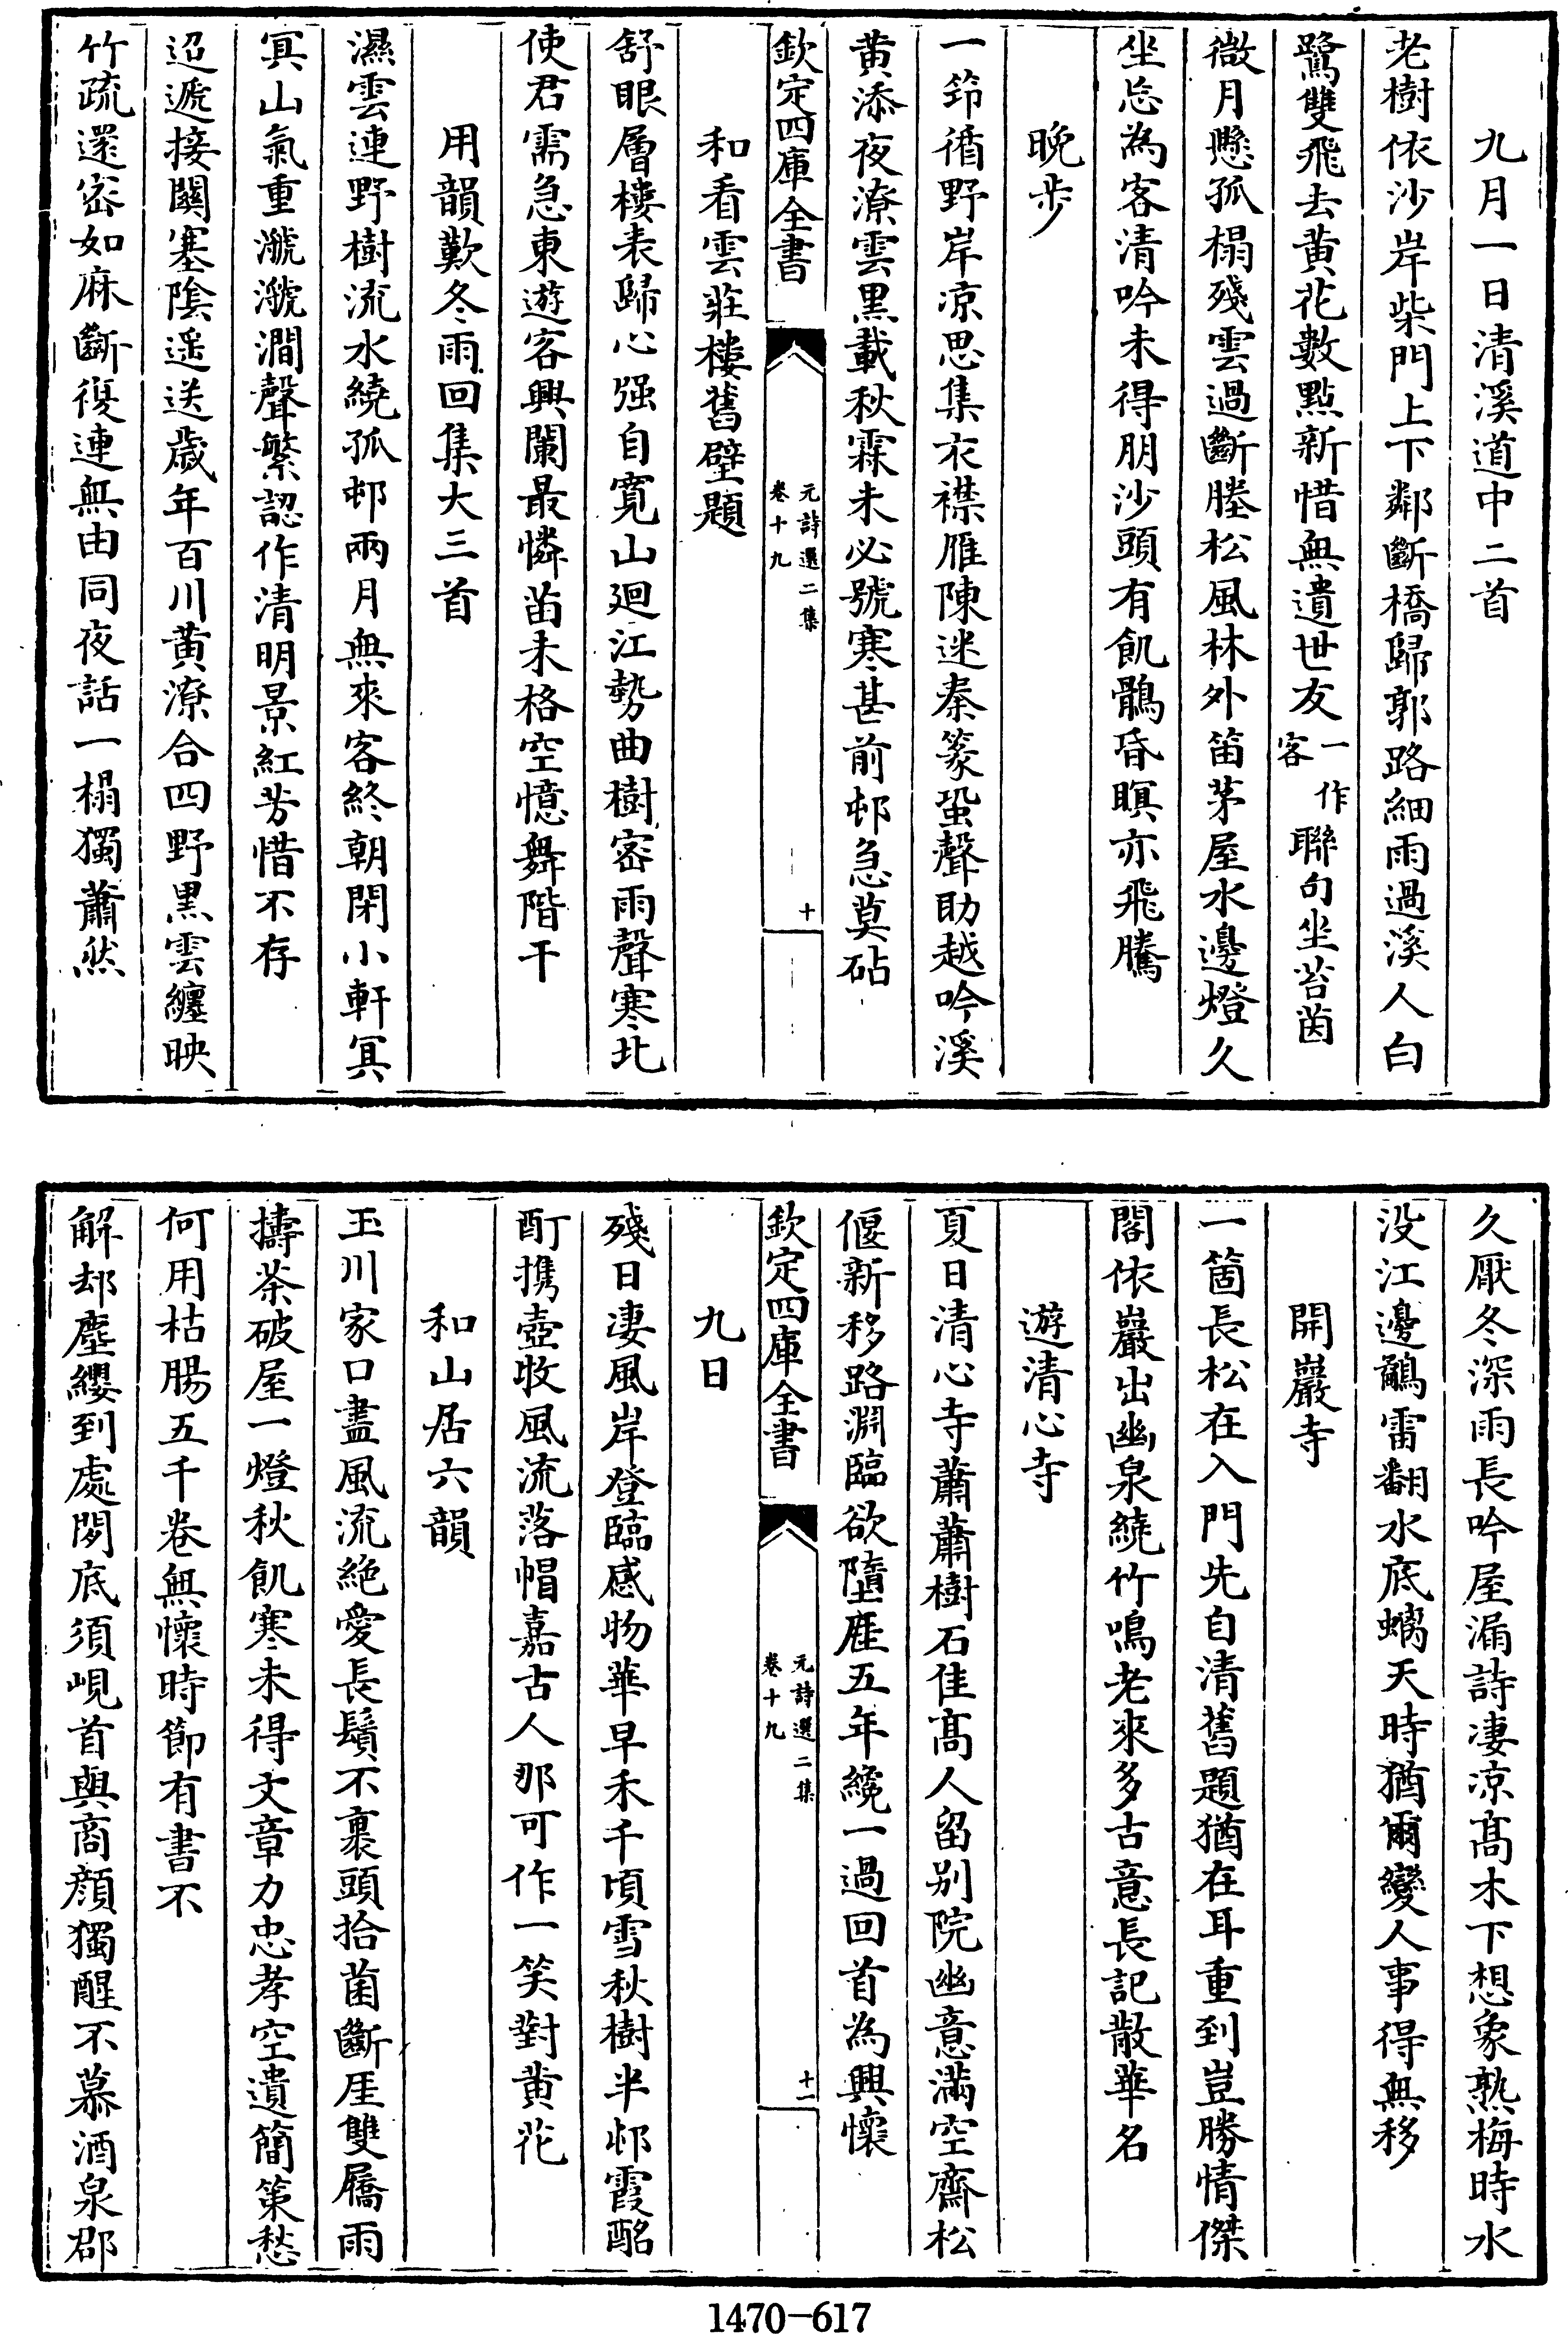 九月一日清溪道中二首
老樹依沙岸柴門上下鄰斷橋歸郭路細雨過溪人白
鷺雙飛去黄花數點新惜無遺世友一作客聯句坐苔茵
微月懸孤榻殘雲過斷塍松風林外笛茅屋水邊燈久
坐忘為客清吟未得朋沙頭有飢鶻昏暝亦飛騰
晩步
一笻循野岸凉思集衣襟雁陳迷秦篆蛩聲助越吟溪
黄添夜潦雲黒載秋霖未必號寒甚前邨急莫砧
欽定四庫全書
元詩選二集
卷十九
十
和看雲莊樓舊壁題
舒眼層樓表歸心强自寛山廻江勢曲樹密雨聲寒北
使君需急東遊客興闌最憐苗未格空憶舞階干
用韻歎冬雨回集大三首
濕雲連野樹流水繞孤邨兩月無來客終朝閉小軒冥
冥山氣重㶁㶁澗聲繁認作清明景紅芳惜不存
迢遞接關塞隂遥送歲年百川黄潦合四野黒雲纏映
竹疏還密如麻斷復連無由同夜話一榻獨蕭然
久厭冬深雨長吟屋漏詩凄凉髙木下想象熟梅時水
没江邊鷸雷翻水底螭天時猶爾變人事得無移
開巖寺
一箇長松在入門先自清舊題猶在耳重到豈勝情傑
閣依巖出幽泉繞竹鳴老來多古意長記散華名
遊清心寺
夏日清心寺蕭蕭樹石佳髙人留别院幽意滿空齋松
偃新移路淵臨欲墮厓五年纔一過回首為興懷
欽定四庫全書
元詩選二集
卷十九
十一
九日
殘日凄風岸登臨感物華早禾千頃雪秋樹半邨霞酩
酊携壺收風流落帽嘉古人那可作一笑對黄花
和山居六韻
玉川家口盡風流絶愛長鬚不裹頭拾菌斷厓雙屩雨
擣茶破屋一燈秋飢寒未得文章力忠孝空遺簡策愁
何用枯腸五千卷無懷時節有書不
解却塵纓到處閒底須峴首與商顔獨醒不慕酒泉郡
1470-617